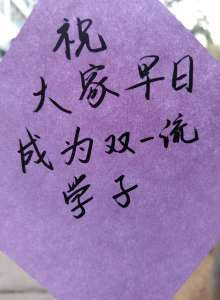 祝
大家早日
成为双一流
学子